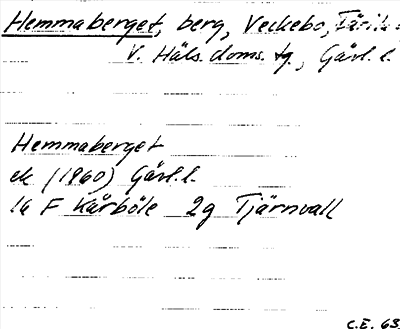 Hemmaberget, berg, Veckebo, Färila
V. Häls. doms. tg., Gävl. l.
Hemmaberget
ek (1960) Gävl. l.
16 F Kårböle 2g Tjärnvall
C.E. 63.